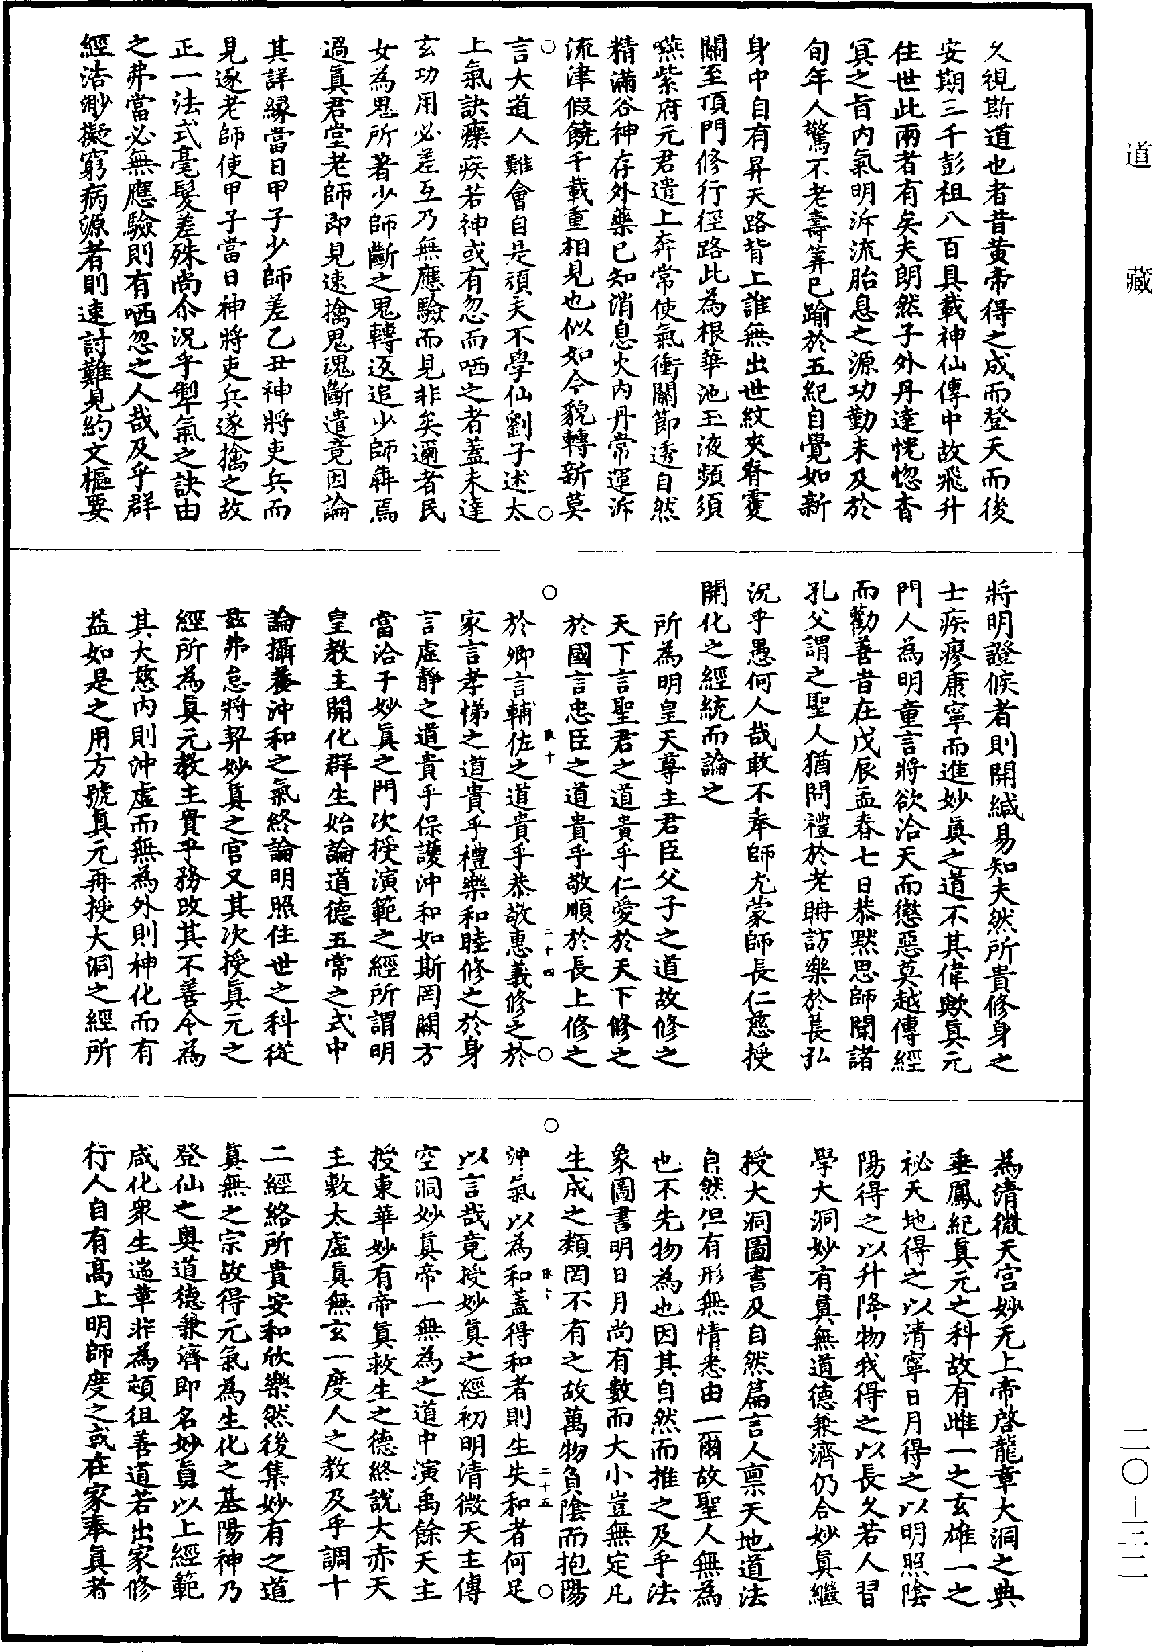 道藏
久視斯道也者昔黃帝得之成而登天而後
安期三千彭祖八百具載神仙傳中故飛升
住世此兩者有矣夫朗然子外丹達恍惚杳
冥之旨內氣明泝流胎息之源功勤未及於
旬年人驚不老壽筭已踰於五紀自覺如新
身中自有昇天路背上誰無出世紋夾脊靈
關至頂門修行徑路此為根華池玉液頻須
嚥紫府元君遣上奔常使氣衝關節透自然
精滿谷神存外藥已知消息火內丹常運泝
流津假饒千載重相見也似如今貌轉新莫
言大道人難會自是頑夫不學仙劉子述太
上氣訣瘵疾若神或有忽而哂之者蓋未達
玄功用必差互乃無應驗而見非矣邇者民
女為鬼所著少師斷之鬼轉返追少師犇焉
過真君堂老師即見速擒鬼魂斷遣竟因論
其詳緣當日甲子少師差乙丑神將吏兵而
見逐老師使甲子當日神將吏兵遂擒之故
正一法式毫髮差殊尚尒況乎犁氣之訣由
之弗當必無應驗則有哂忽之人哉及乎群
經浩緲擬窮病源者則速討難見約文樞要
將明證候者則開緘易知夫然所貴修身之
士疾瘳康寧而進妙真之道不其偉歟真元
門人為明童言將欲洽天而懲惡莫越傳經
而勸善昔在戊辰孟春七日恭默思師聞諸
孔父謂之聖人猶問禮於老聃訪樂於萇弘
況乎愚何人哉敢不奉師尤蒙師長仁慈授
開化之經統而論之
所為明皇天尊主君臣父子之道故修之
天下言聖君之道貴乎仁愛於天下修之
於國言忠臣之道貴乎敬順於長上修之
於卿言輔佐之道貴乎恭敬惠義修之於
家言孝悌之道貴乎禮樂和睦修之於身
言虛靜之道貴乎保護沖和如斯罔闕方
當洽于妙真之門次授演範之經所謂明
皇教主開化群生始論道德五常之式中
論攝養沖和之氣終論明照住世之科從
茲弗怠將契妙真之官又其次授真元之
經所為真元教主貫乎務改其不善令為
其大慈內則沖虛而無為外則神化而有
益如是之用方號真元再授大洞之經所
為清微天宮妙无上帝啓龍章大洞之典
垂鳳紀真元之科故有雌一之玄雄一之
祕天地得之以清寧日月得之以明照陰
陽得之以升降物我得之以長久若人習
學大洞妙有真無道德兼濟仍合妙真繼
授大洞圖書及自然篇言人禀天地道法
自然但有形無情悉由一爾故聖人無為
也不先物為也因其自然而推之及乎法
象圖書明日月尚有數而大小豈無定凡
生成之類罔不有之故萬物負陰而抱陽
沖氣以為和蓋得和者則生失和者何足
以言哉竟授妙真之經初明清微天主傳
空洞妙真帝一無為之道中演禹餘天主
授東華妙有帝真救生之德終說大赤天
主敷太虛真無玄一度人之教及乎調十
二經絡所貴安和欣樂然後集妙有之道
真無之宗故得元氣為生化之基陽神乃
登仙之奧道德兼濟即名妙真以上經範
咸化衆生遄革非為頓徂善道若出家修
行人自有高上明師度之或在家奉真者
二〇—三二